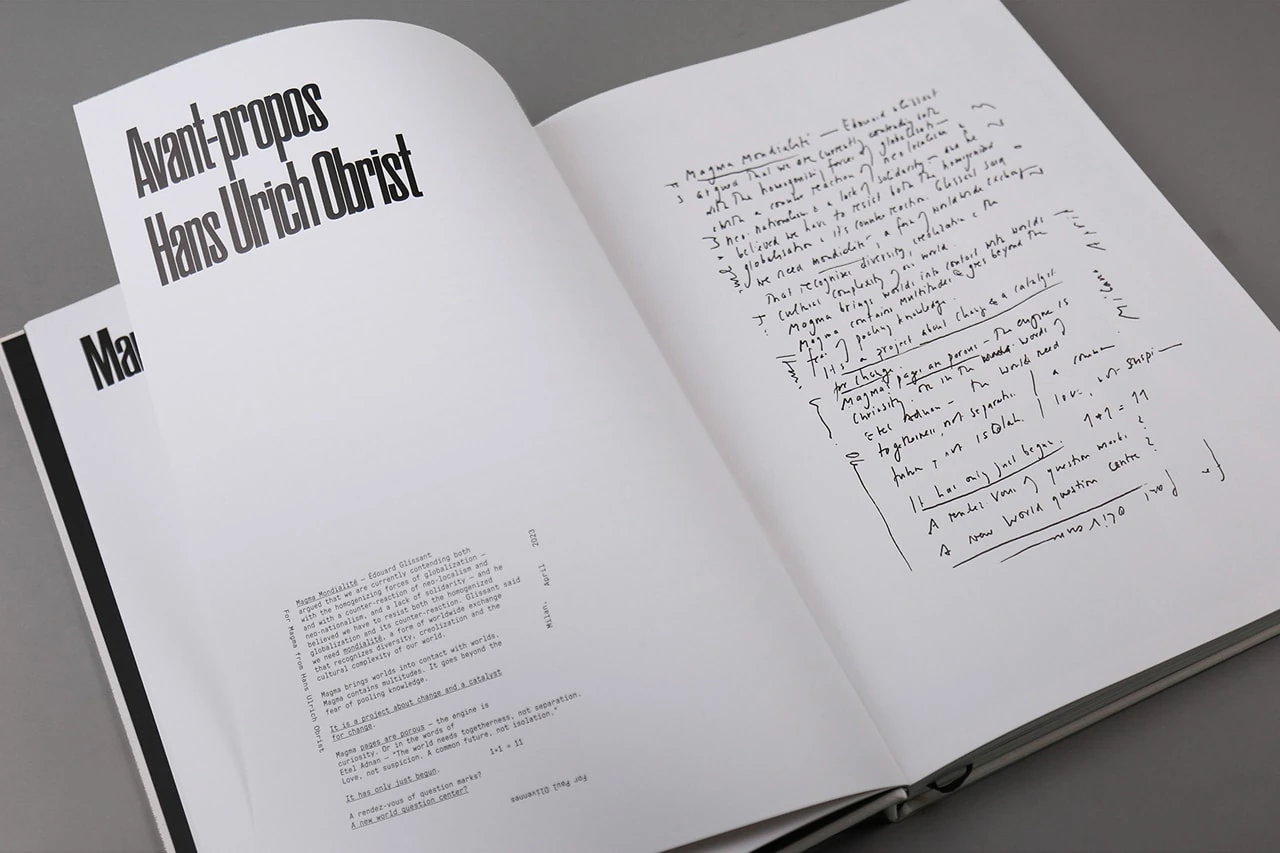 Avant-propos
Hans Ulrich Obrist
Ma
Magma Mondialité — Edouard Glissant
argued that we are currently contending both
with the homogenizing forces of globalization —
and with a counter-reaction of neo-localism and
neo-nationalism, and a lack of solidarity — and he
believed we have to resist both the homogenized
globalization and its counter-reaction. Glissant said
we need mondialité, a form of worldwide exchange
that recognizes diversity, creolization and the
cultural complexity of our world.
Magma brings worlds into contact with worlds.
Magma contains multitudes. It goes beyond the
fear of pooling knowledge.
It is a project about change and a catalyst
for change.
Magma pages are porous — the engine is
curiosity. Or in the words of
Etel Adnan — "The world needs togetherness, not separation.
Love, not suspicion. A common future, not isolation."
1+1 = 11
It has only just begun.
A rendez-vous of question marks?
A new world question center?
For Magma from Hans Ulrich Obrist
Milan, April 2023
For Paul Olivennes
Magma Mondialité — Edouard Glissant
argued that we are currently contending both
with the homogenizing forces of globalisati—
with a counter reaction of neo localism &
neo-nationalism & a lack of solidarity — and he
believed we have to resist both the homogenized
globalisation & its counter reaction. Glissant said
we need mondialité, a form of worldwide exchange
That recognizes diversity, creolization & the
cultural complexity of our world.
Magma brings worlds into contact with worlds
Magma contains Multitudes & goes beyond the
fear of pooling knowledge.
It is a project about change & a catalyst
for change.
Magma pages are porous — The engine is
Curiosity. Or in the words of
Etel Adnan — The world need
togetherness, not separation | love, not suspi—
future, not isolati | a common
It has only just begun. 1+1 = 11
A rendez-vous of question marks ?
A new world question centre ?
Milan, April
for Paul Olivennes